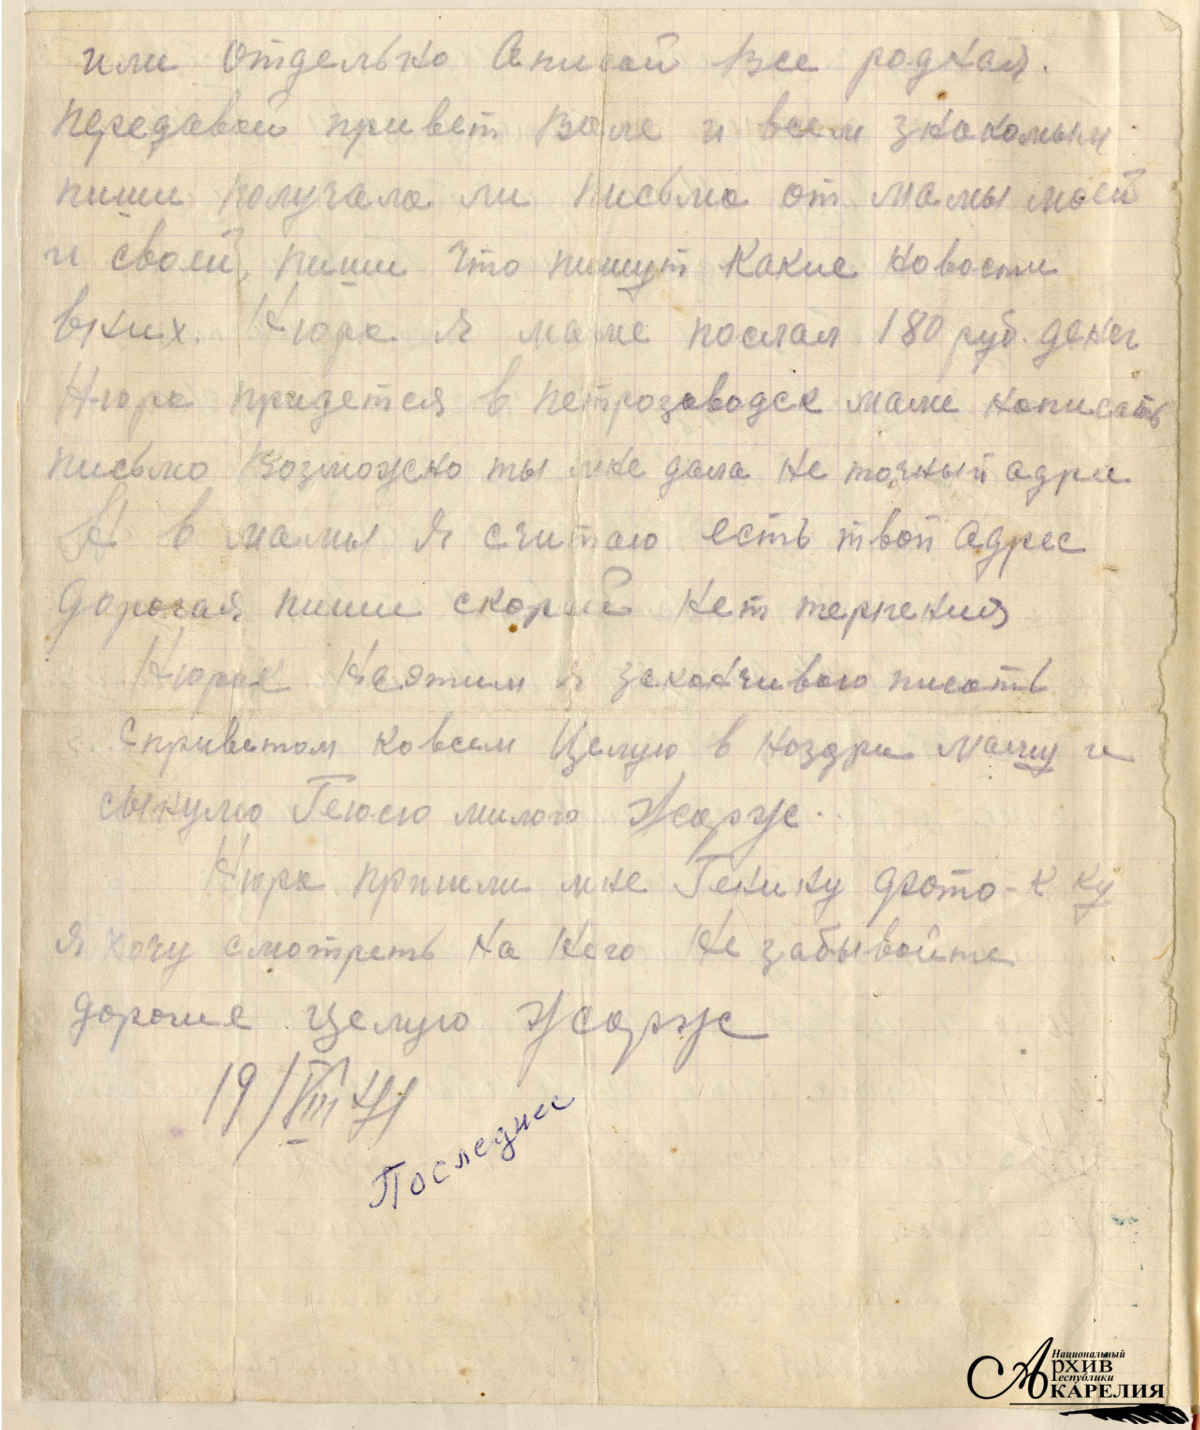 или отдельно Описой все родная.
передавай привет Вале и всем знакомым
пиши получала ли письмо от мамы моей
и своей, пиши что пишут какие новости
вних. Нюра я маме послал 180 руб. денег
Нюра придется в Петрозаводск маме написать
письмо Возможно ты мне дала не точный адре
А в мамы я считаю есть твой адрес
Дорогая, пиши скорей нет терпения
Нюрая Насятим я заканчиваю писать
Сприветом ковсем Целую в ноздри мамку и
сынулю Генюсю милого Жорж.
Нюра пришли мне Генику фото-к ку
я хочу смотреть на него Не забывайте
дорогие целую Жорж
19/VIII 41
Последнее
Национальный
АРХИВ
Республики
КАРЕЛИЯ